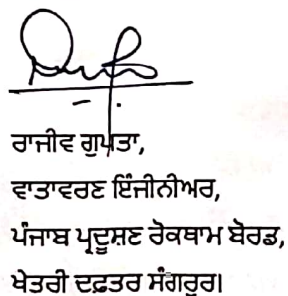 ਰਾਜੀਵ ਗੁਪਤਾ,
ਵਾਤਾਵਰਣ ਇੰਜੀਨੀਅਰ,
ਪੰਜਾਬ ਪ੍ਰਦੂਸ਼ਣ ਰੋਕਥਾਮ ਬੋਰਡ,
ਖੇਤਰੀ ਦਫ਼ਤਰ ਸੰਗਰੂਰ।